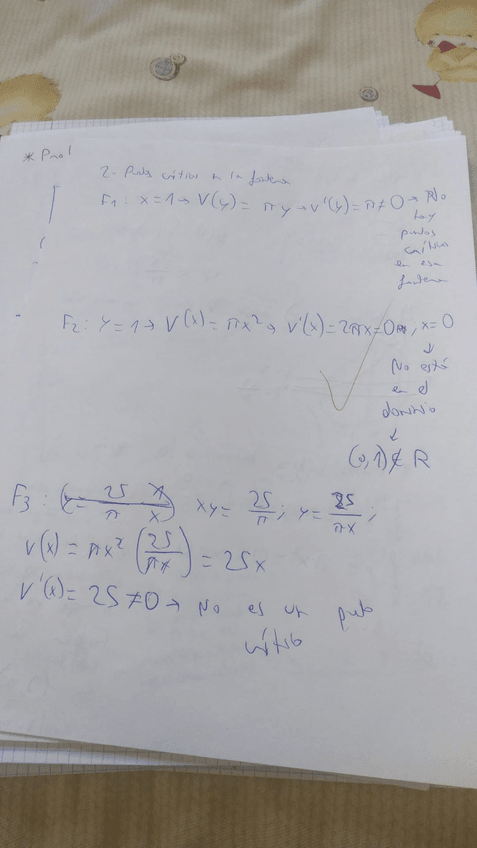 * Prob1
2- Puntos críticos en la frontera
F1: x=1→ V(y)= πy → V'(y)= π≠0 → No
hay
puntos
críticos
en esa
frontera
F2: y=1→ V(x)=πx²→ V'(x)=2πx=0 , x=0
↓
No está
en el
dominio
↓
(0,1)∉ R
F3: xy= 25/π; y= 25/πx;
V(x)= πx² (25/πx) = 25x
V'(x)= 25≠0→ No es un punto
crítico